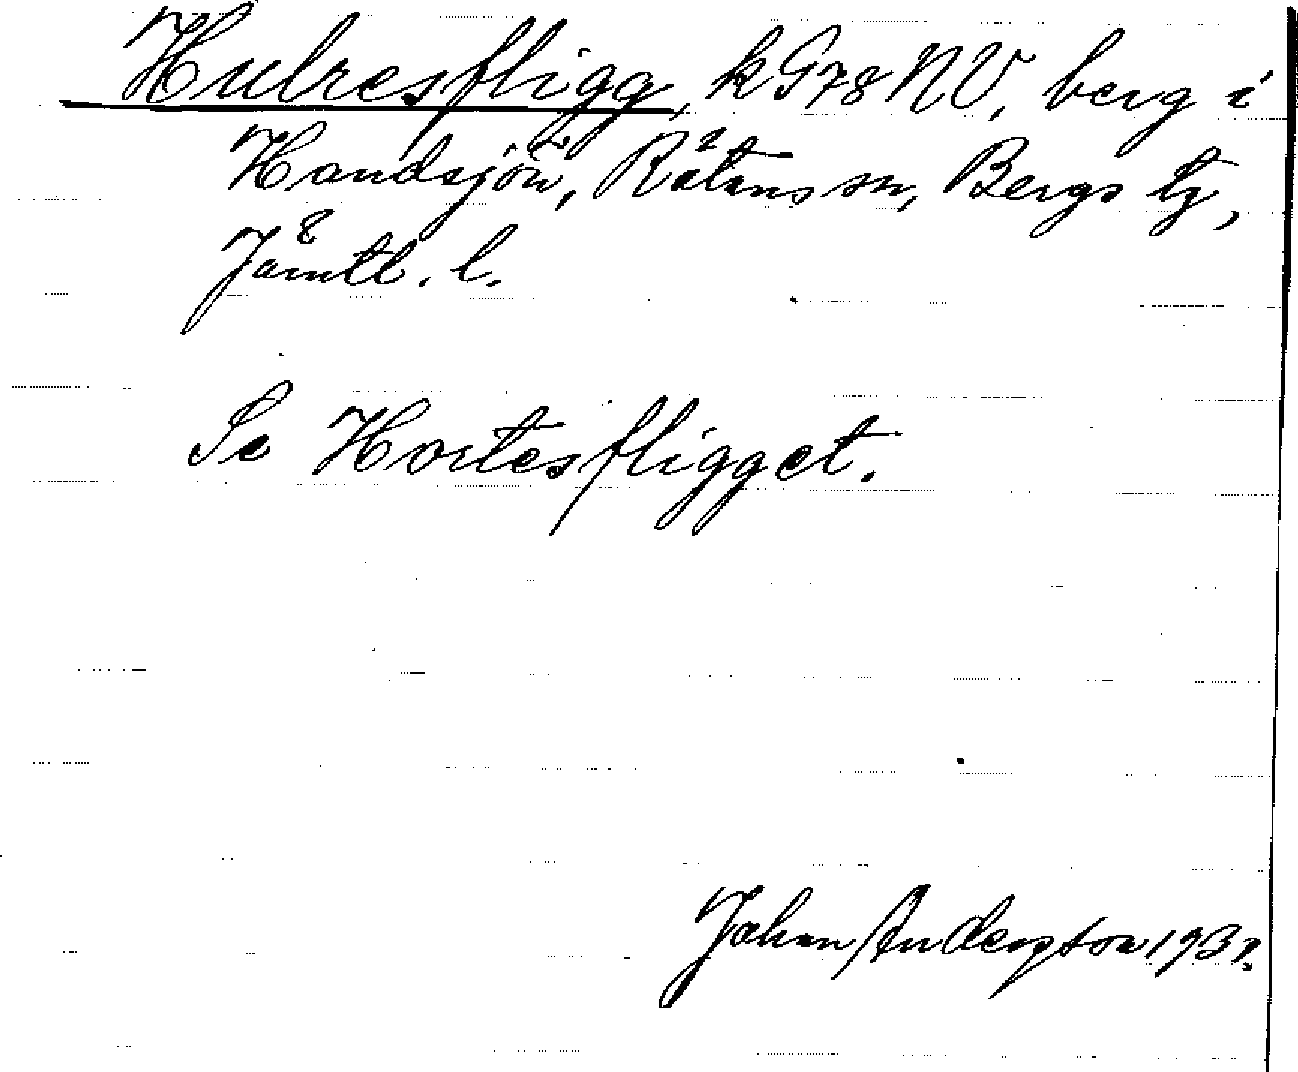 Hulresfligg, k G78 NV, berg i
Handsjön, Rätans sn, Bergs tg,
Jämtl. l.
Se Hortesfligget.
Johan Anderson